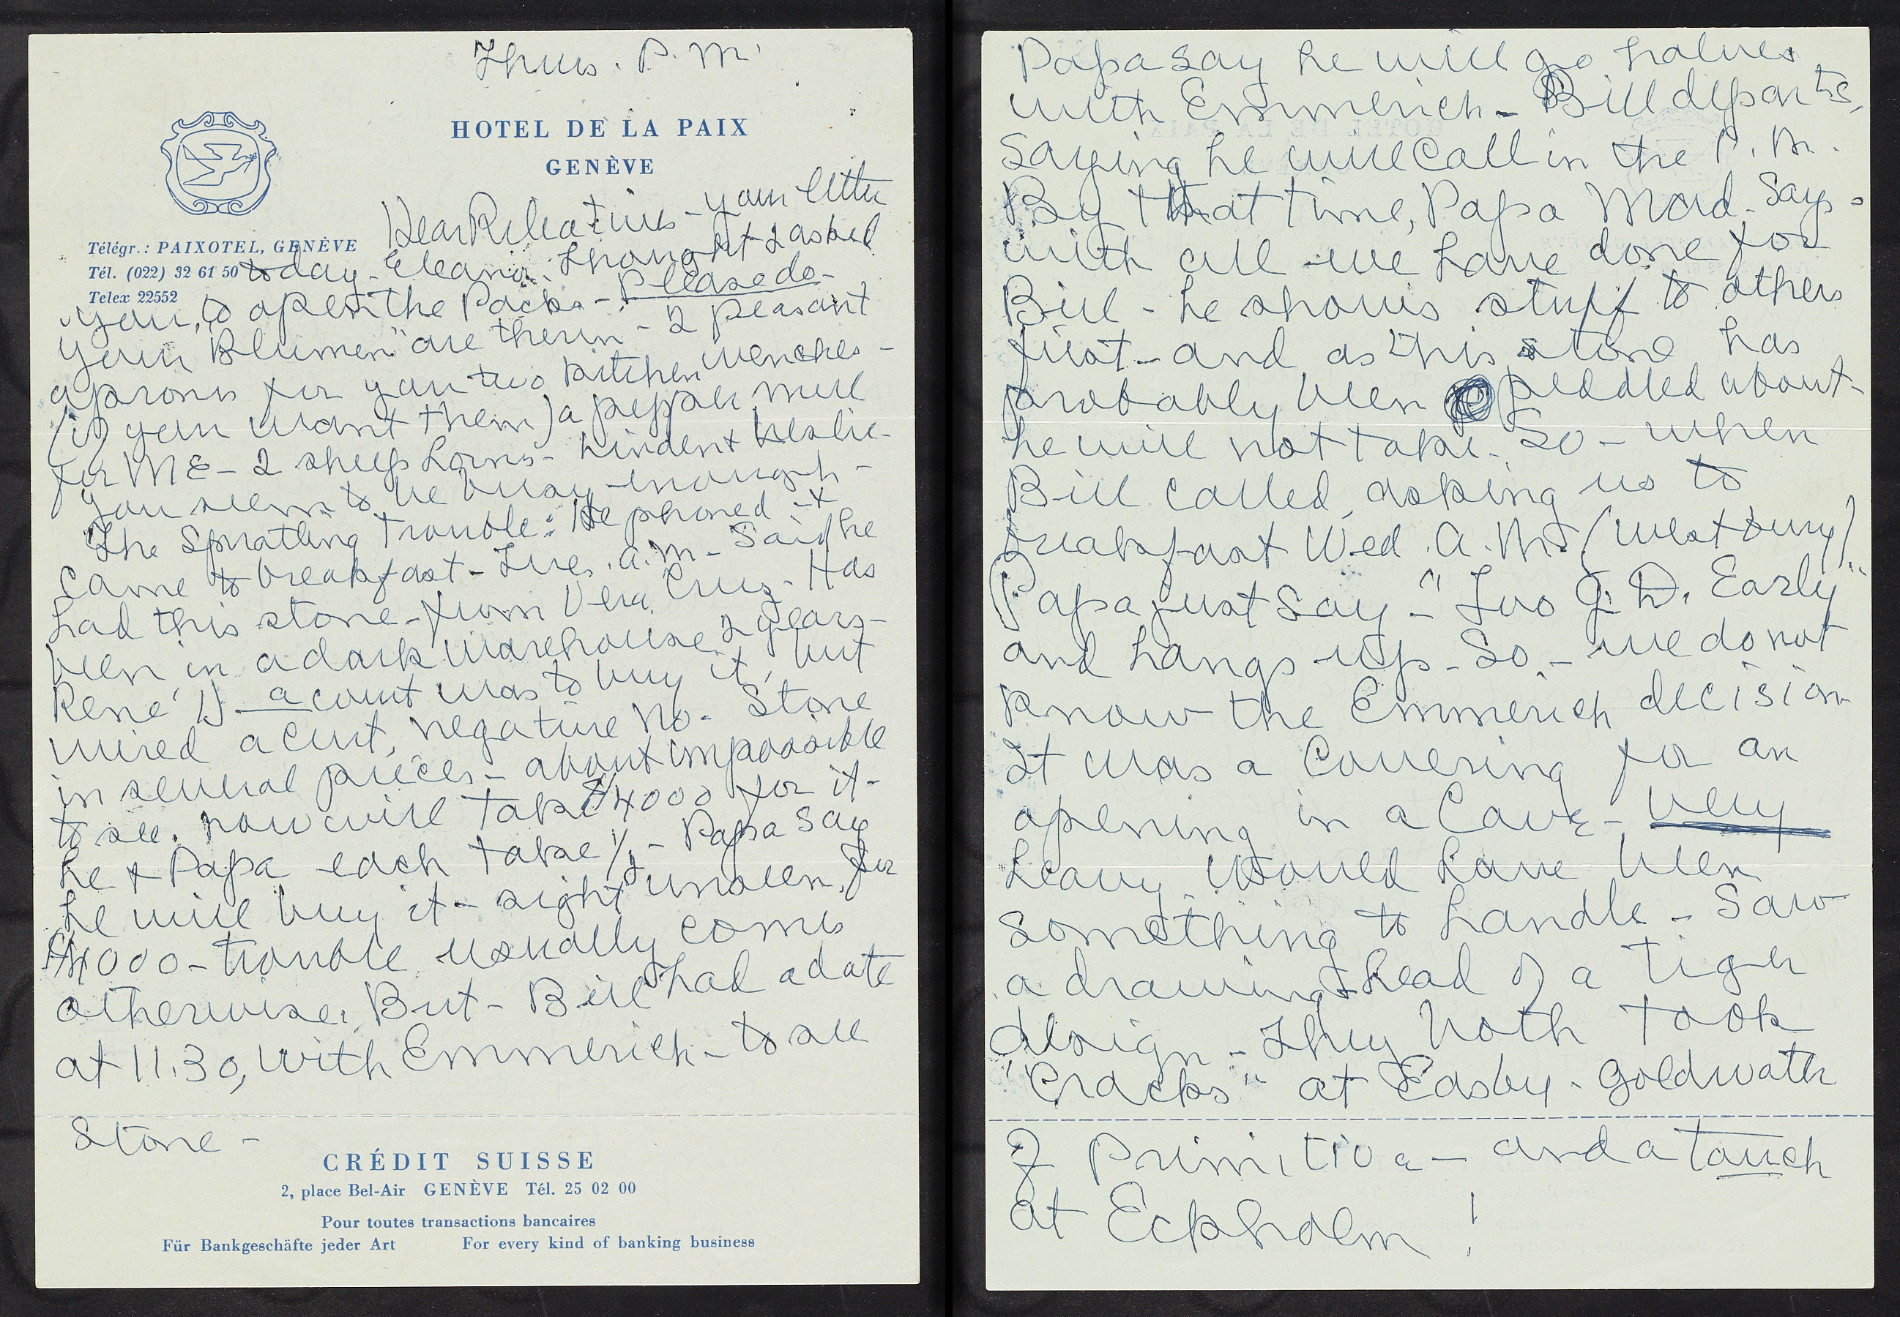 Thurs. P.M.
HOTEL DE LA PAIX
GENÈVE
Dear Releatives - your letter
Télégr.: PAIXOTEL, GENÈVE
Tél. (022) 32 61 50
Telex 22552
today. Eleanor thought I asked
you, to open the Packs - Please do -
your Blumen" are therin - 2 peasant
aprons for you two kitchen wenches -
(if you want them) a pepper mill
for ME - 2 sheep horns -
you seem to be busy enough -
The Spratling Trouble: He phoned &
came to breakfast - Tues. a.m. - Said he
had this stone - from Vera Cruz - Has
been in a dark warehouse 2 years -
René D a count was to buy it, but
wired a curt, negative No. Stone
in several pieces - about impossible
to see. now will take $4000 for it -
he & Papa each take 1/2 - Papa say
he will buy it - sight unseen, for
$4000 - trouble usually comes
otherwise. But - Bill had a date
at 11.30, with Emmerich - to see
stone -
CRÉDIT SUISSE
2, place Bel-Air GENÈVE Tél. 25 02 00
Pour toutes transactions bancaires
Für Bankgeschäfte jeder Art For every kind of banking business
Papa say he will go halves
with Emmerich - Bill departs,
saying he will call in the P.M.
By that time, Papa Mad. Says -
with all we have done for
Bill - he shows stuff to others
first - and as this stone has
probably been peddled about -
he will not take. So - when
Bill called, asking us to
breakfast Wed. A.M. (Westbury)
(Papa just say - "Too G. D. Early"
and hangs up. So - we do not
know the Emmerich decision
It was a Covering for an
opening in a Cave - very
heavy. Would have been
something to handle - Saw
a drawing & head of a Tiger
design - They both took
"Cracks" at Easby - Goldwater
of Primitive - and a touch
at Eckholm !